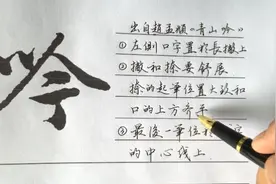 吟
出自趙孟頫《青山吟》
①左側口字置於長撇上
②撇和捺要舒展
捺的起筆位置大致和
口的上方齊平
③最後一筆位
的中心线上